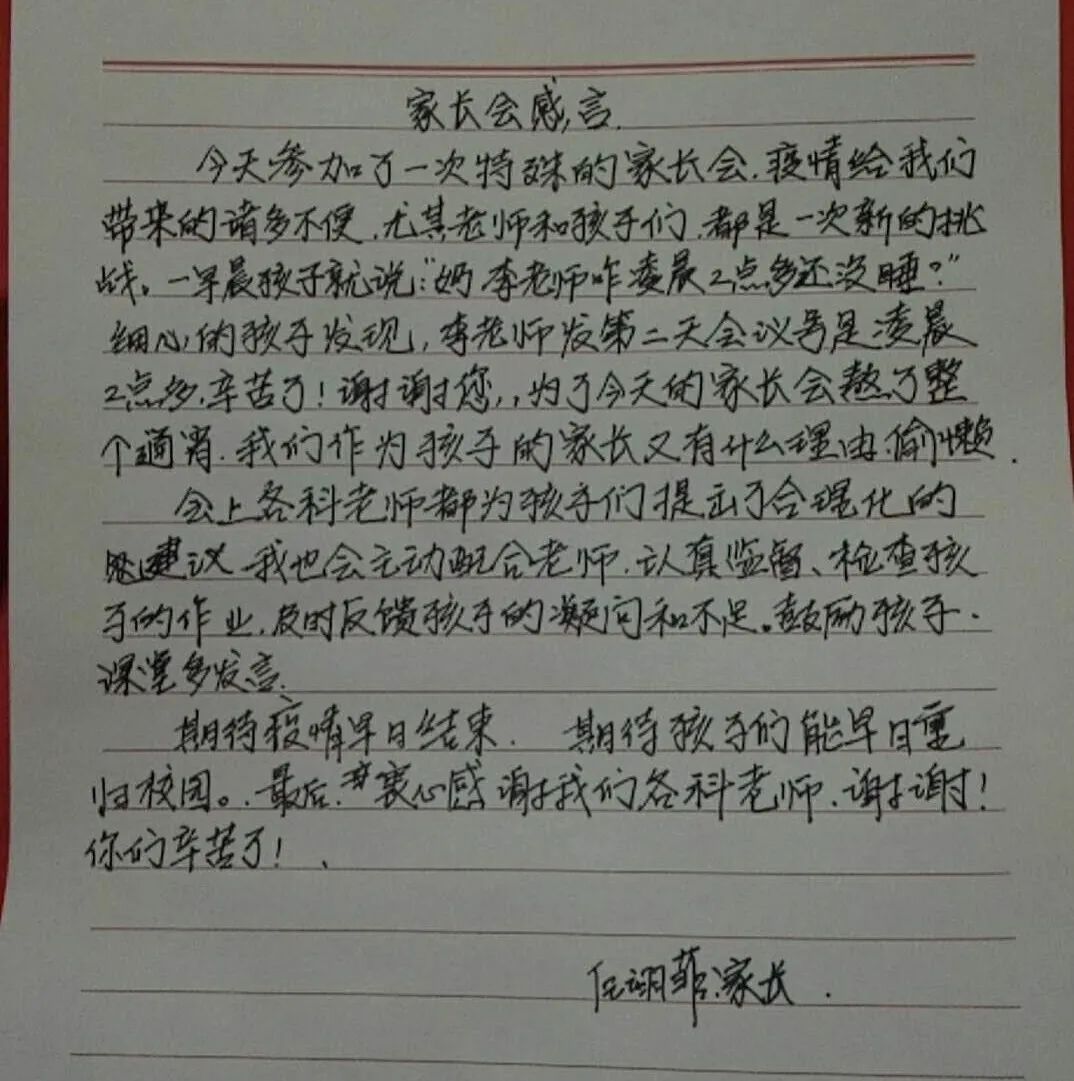 家长会感言.
今天参加了一次特殊的家长会.疫情给我们
带来的诸多不便.尤其老师和孩子们.都是一次新的挑
战。一早晨孩子就说:“妈李老师咋凌晨2点多还没睡?”
细心的孩子发现,李老师发第二天会议号是凌晨
2点多.辛苦了!谢谢您,,为了今天的家长会熬了整
个通宵.我们作为孩子的家长又有什么理由偷懒.
会上各科老师都为孩子们提出了合理化的
建议.我也会主动配合老师.认真监督、检查孩
子的作业.及时反馈孩子的凝问和不足。鼓励孩子.
课堂多发言.
期待疫情早日结束. 期待孩子们能早日重
归校园。.最后.衷心感谢我们各科老师.谢谢!
你们辛苦了!.
任诩菲家长.